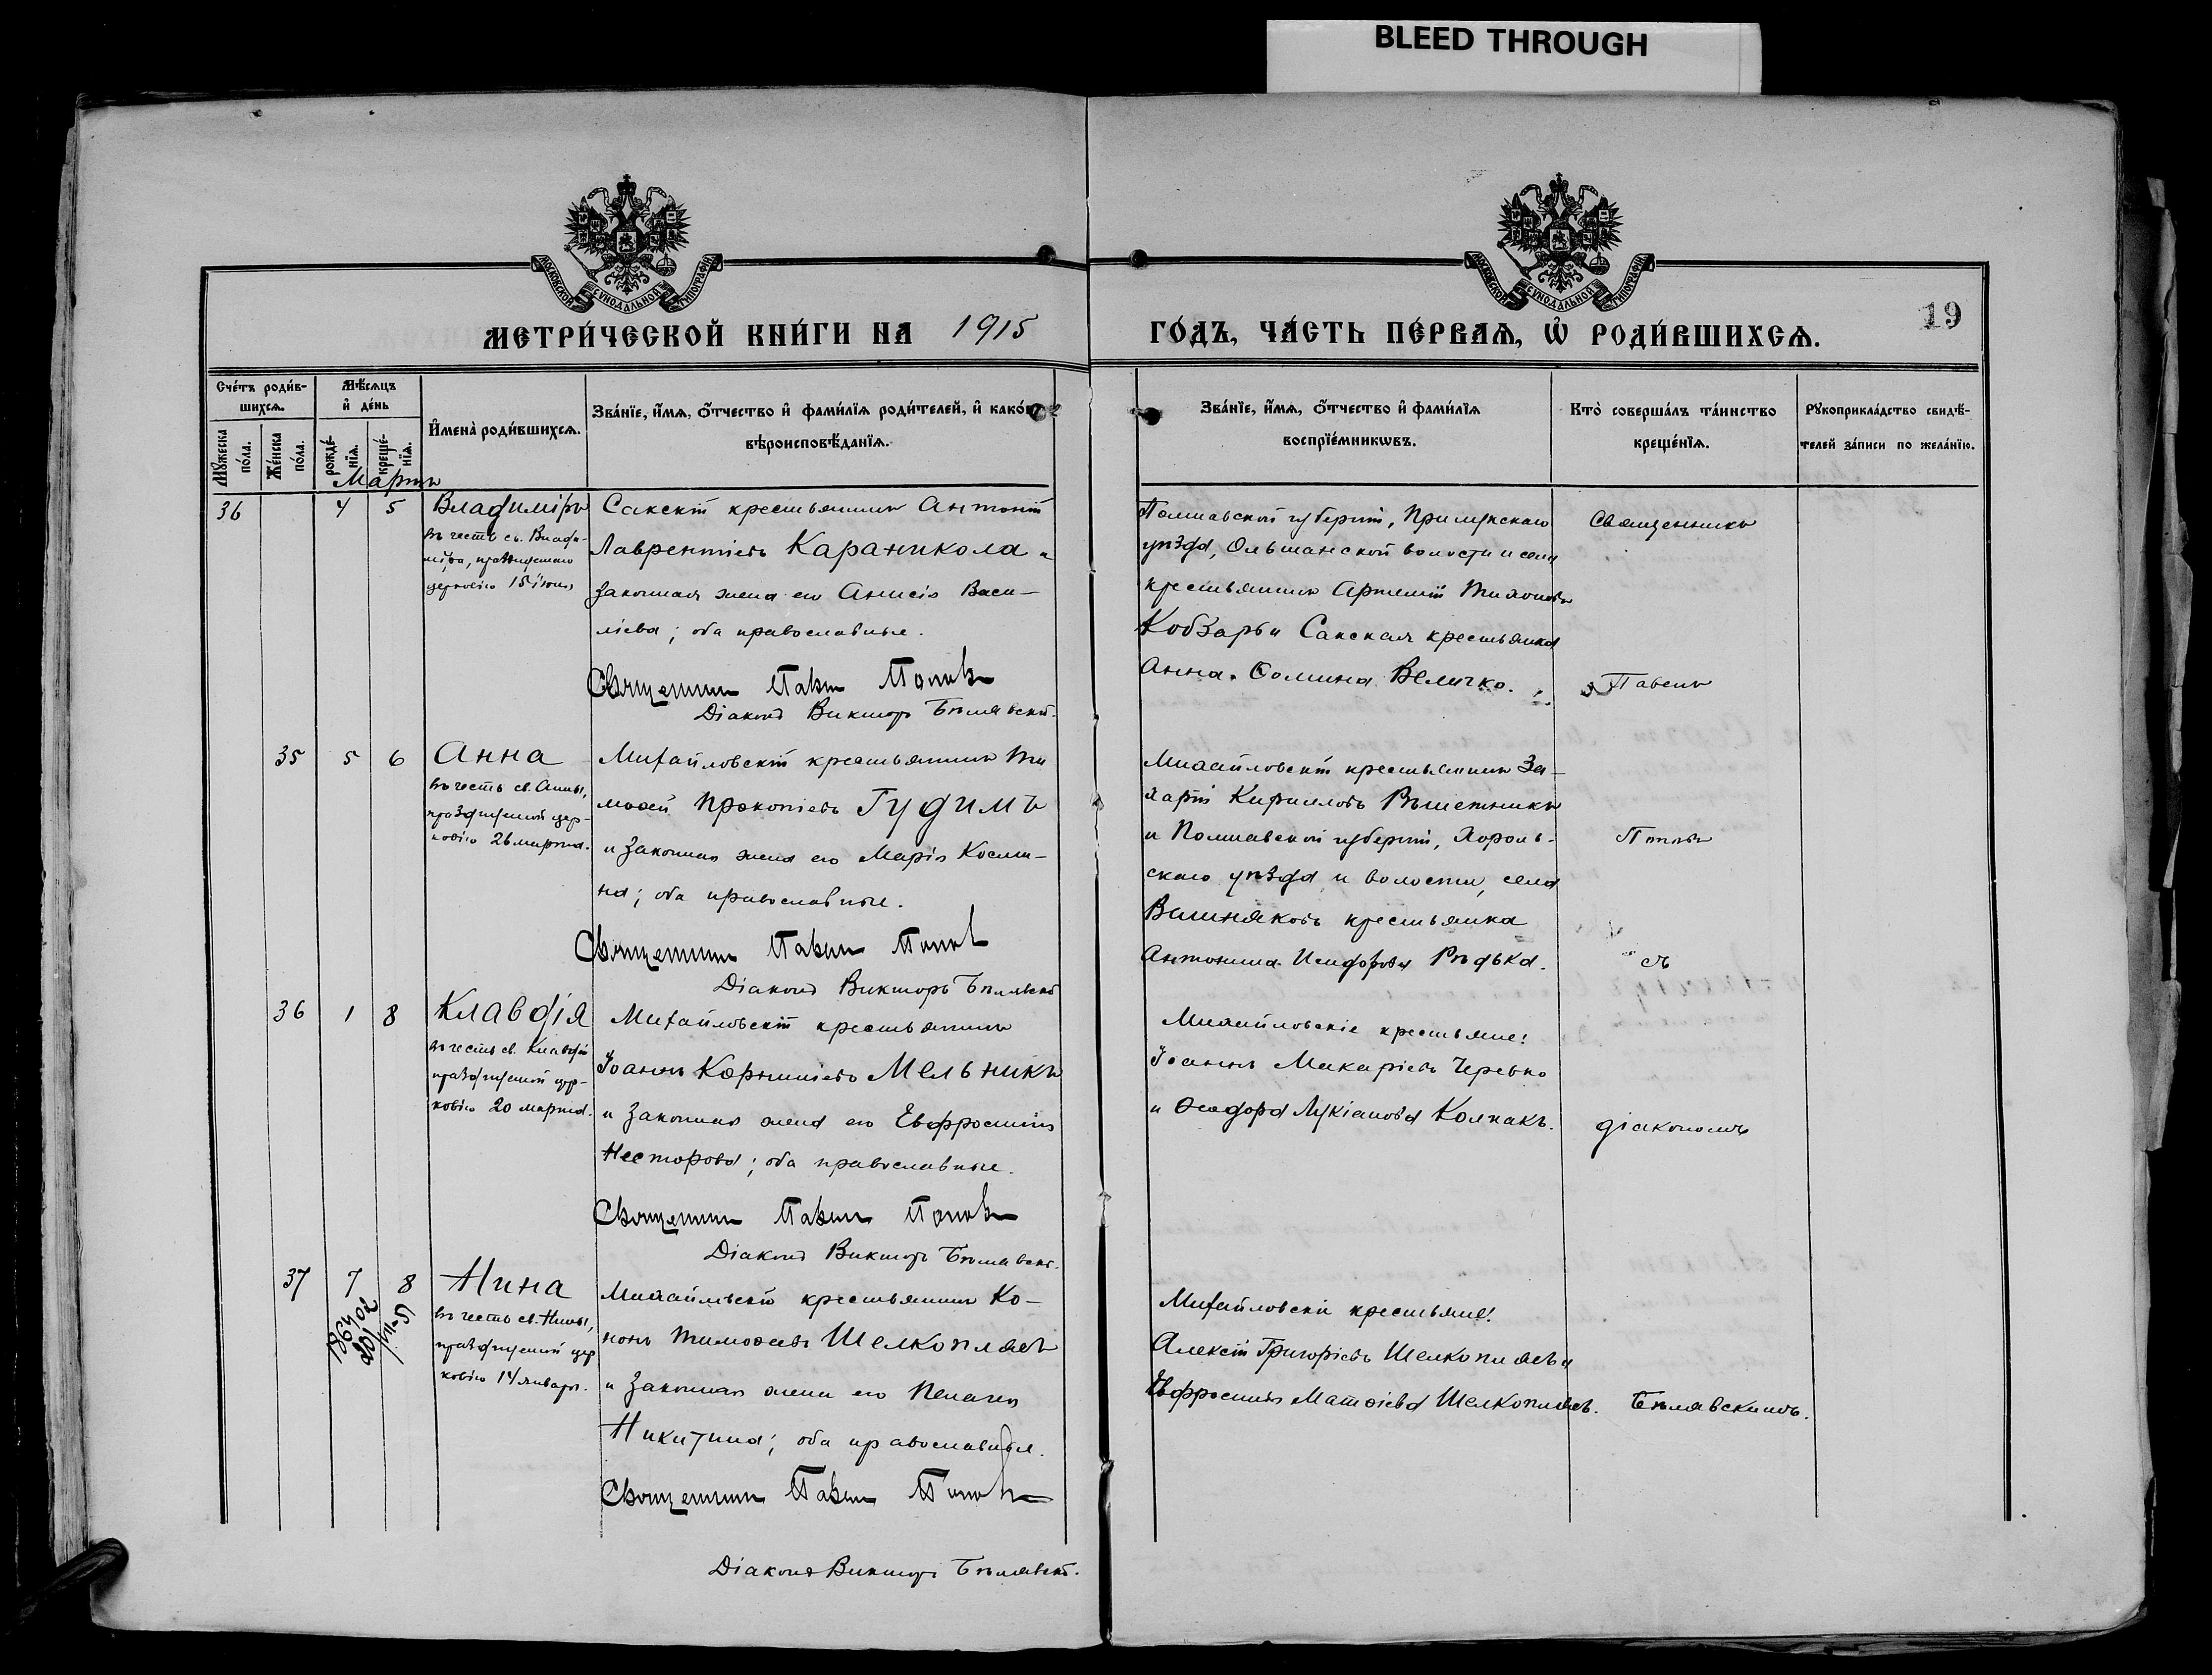 BLEED THROUGH
МОСКОВСКОЙ СУНОДАЛЬНОЙ ТИПОГРАФІИ
МОСКОВСКОЙ СУНОДАЛЬНОЙ ТИПОГРАФІИ
19
МЕТРИ́ЧЕСКОЙ КНИ́ГИ НА 1915 ГО́ДЪ, ЧА́СТЬ ПЕ́РВАѦ, Ѡ РОДИ́ВШИХСѦ.
Сче́тъ роди́в-
шихсѧ.
Мꙋ́жеска по́ла.
Же́нска по́ла.
Мѣ́сѧцъ
и҆ де́нь
рожде́-
нїѧ.
креще́-
нїѧ.
И҆мена̀ роди́вшихсѧ.
Зва́нїе, и҆́мѧ, ѻ҆́тчество и҆ фами́лїѧ роди́телей, и҆ како́гѡ
вѣроисповѣ́данїѧ.
Зва́нїе, и҆́мѧ, ѻ҆́тчество и҆ фами́лїѧ
воспрїе́мникѡвъ.
Кто̀ соверша́лъ та́инство
креще́нїѧ.
Рꙋкоприкла́дство свидѣ́-
телей за́писи по жела́нїю.
Мартъ
36 4 5 Владиміръ
въ честь св. Влади-
міра, празднуемаго
церковію 15 іюля
Сакскій крестьянинъ Антоній
Лаврентіевъ Караникола и
законная жена его Анисія Васи-
ліева; оба православные.
Священникъ Павелъ Поповъ
Діаконъ Викторъ Бѣлявскій.
Полтавской губерніи, Прилукскаго
уѣзда, Ольшанской волости и села
крестьянинъ Артемій Тихоновъ
Кобзарь и Сакская крестьянка
Анна Ѳомина Величко.
Священникъ
Павелъ
35 5 6 Анна
въ честь св. Анны,
празднуемой цер-
ковію 26 марта.
Михайловскій крестьянинъ Ти
моѳей Прокопіевъ Гудимъ
и законная жена его Марія Косми-
на; оба православные.
Священникъ Павелъ Поповъ
Діаконъ Викторъ Бѣлявскій
Михайловскій крестьянинъ За-
харій Кирилловъ Рѣшетникъ
и Полтавской губерніи, Хороль-
скаго уѣзда и волости, села
Вишняковъ крестьянка
Антонина Исидорова Рѣдька.
Поповъ
съ
36 1 8 Клавдія
въ честь св. Клавдіи
празднуемой цер-
ковію 20 марта.
Михайловскій крестьянинъ
Іоаннъ Корниліевъ Мельникъ
и законная жена его Евфросинія
Несторова; оба православные.
Священникъ Павелъ Поповъ
Діаконъ Викторъ Бѣлявскій.
Михайловскіе крестьяне:
Іоаннъ Макаріевъ Черевко
и Ѳеодора Лукіанова Колпакъ.
діакономъ
37 7 8 Нина
въ честь св. Нины,
празднуемой цер
ковію 14 января.
Михайловскій крестьянинъ Ко-
нонъ Тимоѳеевъ Шелкоплясъ
и законная жена его Пелагія
Никитина; оба православные.
Священникъ Павелъ Поповъ
Діаконъ Викторъ Бѣлявскій.
Михайловскіе крестьяне:
Алексій Григоріевъ Шелкоплясъ и
Евфросинія Матѳіева Шелкоплясъ.
Бѣлявскимъ.